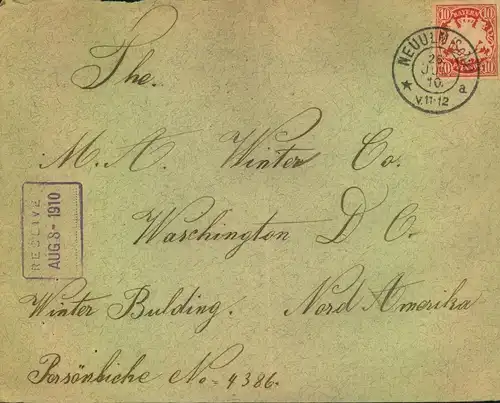 10 BAYERN 10
NEUULM
26
JUL
10.
a
V.11-12
The.
M. A. Winter Co.
RECEIVE
AUG 8 - 1910
Waschington D C.
Winter Bulding. Nord Amerika
Persönliche No- 4386.